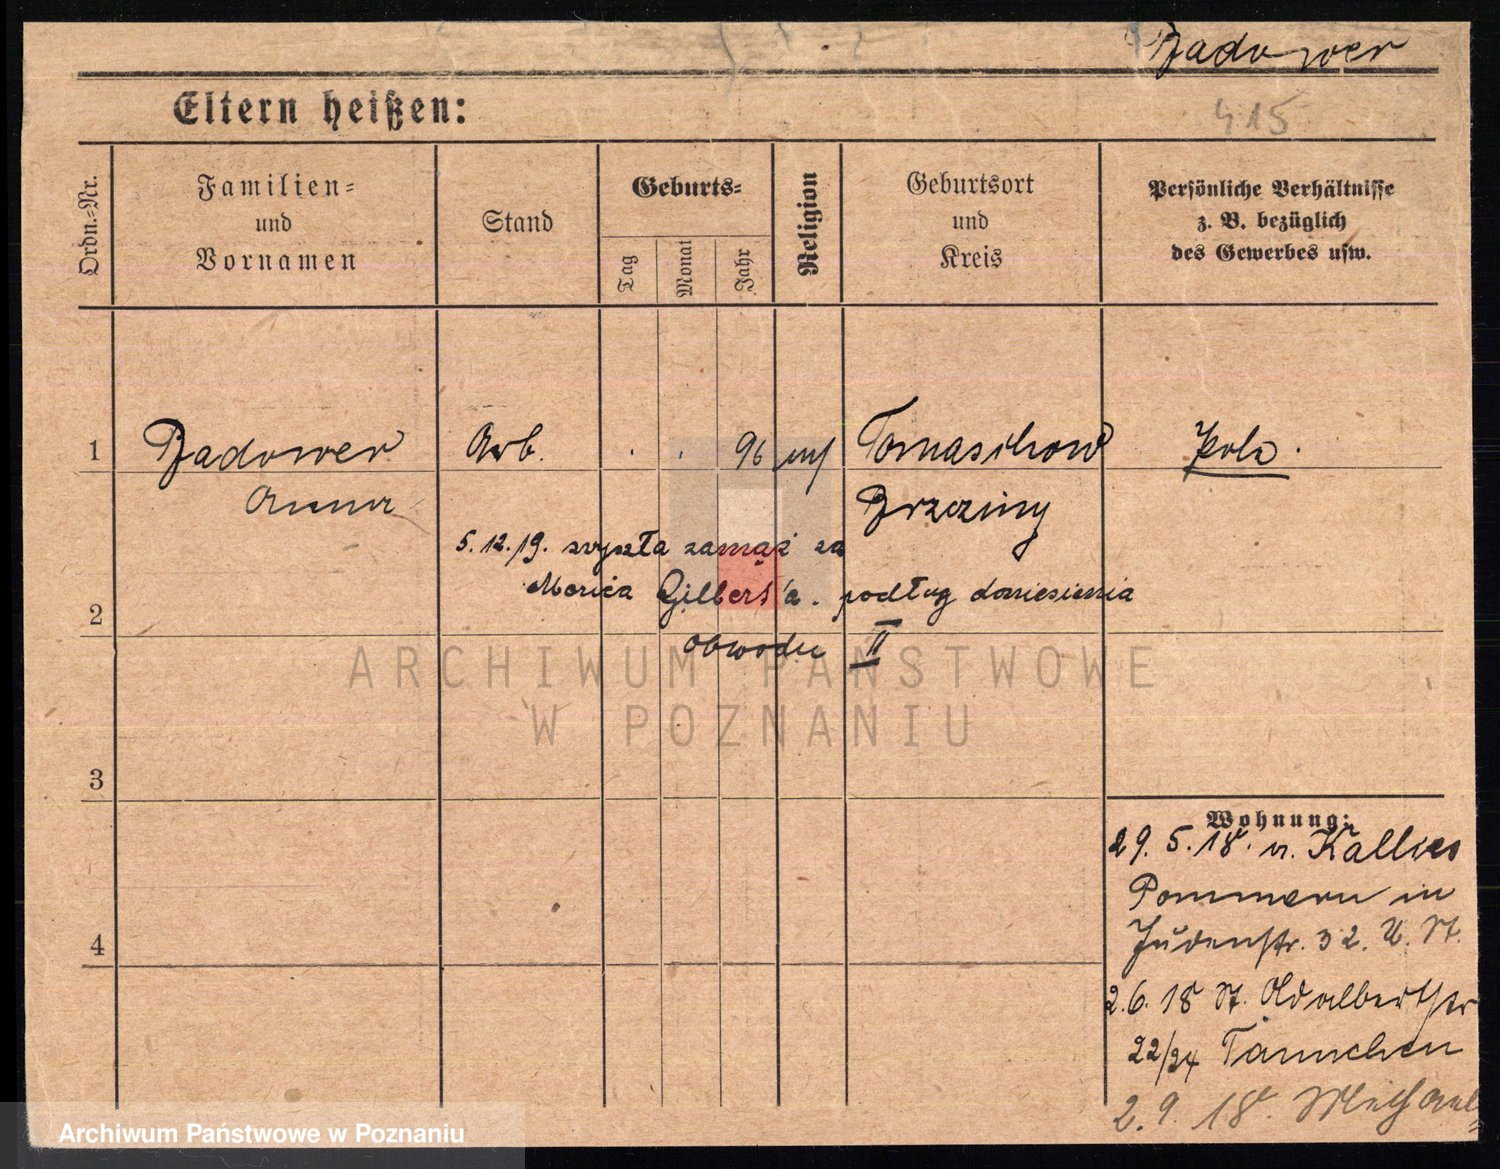 Badower
415
Eltern heißen:
Ordn.-Nr.
Familien-
und
Vornamen
Stand
Geburts-
Tag
Monat
Jahr
Religion
Geburtsort
und
Kreis
Persönliche Verhältnisse
z. B. bezüglich
des Gewerbes usw.
1 Badower Arb. 96 Tomaschow
Anna Brzeziny
5.12.19. wyszła zamąż za
Morica Gilbert'a. podług doniesienia
2
obwodu II
ARCHIWUM PAŃSTWOWE
W POZNANIU
3
Wohnung:
29. 5. 18. v. Kallies
Pommern in
Judenstr. 32. b. St.
4
2.6. 18 St. Adalbertstr
22/24 Tannchen
2. 9. 18.
Archiwum Państwowe w Poznaniu